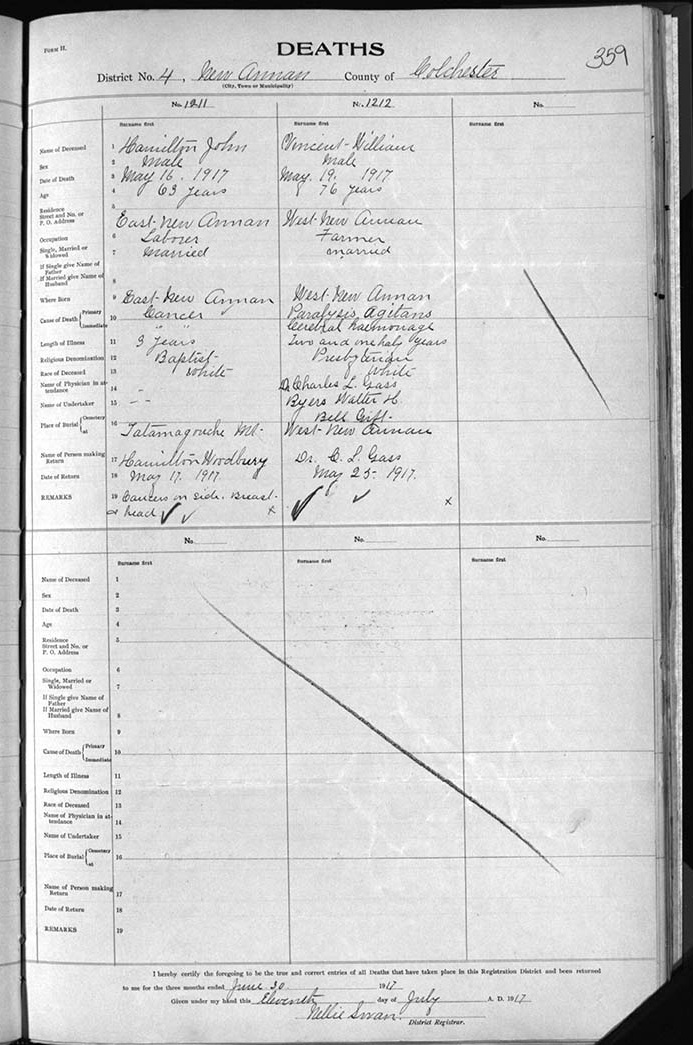 FORM II.
DEATHS
359
District No. 4, New Annan County of Colchester
(City, Town or Municipality)
No. 1211 No. 1212 No.
Surname first Surname first Surname first
Name of Deceased 1 Hamilton John Vincent William
Sex 2 Male Male
Date of Death 3 May 16. 1917 May. 19. 1917
Age 4 63 years 76 years
Residence 5
Street and No. or
P. O. Address East New Annan West New Annan
Occupation 6 Laborer Farmer
Single, Married or Widowed 7 Married married
If Single give Name of
Father
If Married give Name of
Husband 8
Where Born 9 East New Annan West New Annan
Cause of Death { Primary 10 Cancer Paralysis Agitans
Immediate " " Cerebral haemorrage
Length of Illness 11 3 years Two and one half years
Religious Denomination 12 Baptist Presbyterian
Race of Deceased 13 White White
Name of Physician in attendance 14 - - Dr Charles L. Gass
Name of Undertaker 15 - - Byers Walter H.
Place of Burial { Cemetery 16 Bell Gift
at Tatamagouche Mt. West New Annan
Name of Person making
Return 17 Hamilton Woodbury Dr. C. L. Gass
Date of Return 18 May 17. 1917 May 25. 1917.
REMARKS 19 Cancers on side. Breast
or head ✓ ✓ x ✓ ✓ x
No. No. No.
Surname first Surname first Surname first
Name of Deceased 1
Sex 2
Date of Death 3
Age 4
Residence 5
Street and No. or
P. O. Address
Occupation 6
Single, Married or
Widowed 7
If Single give Name of
Father
If Married give Name of
Husband 8
Where Born 9
Cause of Death { Primary 10
Immediate
Length of Illness 11
Religious Denomination 12
Race of Deceased 13
Name of Physician in attendance 14
Name of Undertaker 15
Place of Burial { Cemetery 16
at
Name of Person making
Return 17
Date of Return 18
REMARKS 19
I hereby certify the foregoing to be the true and correct entries of all Deaths that have taken place in this Registration District and been returned
to me for the three months ended June 30 1917
Given under my hand this Eleventh day of July A. D. 1917
Nellie Swan.
District Registrar.